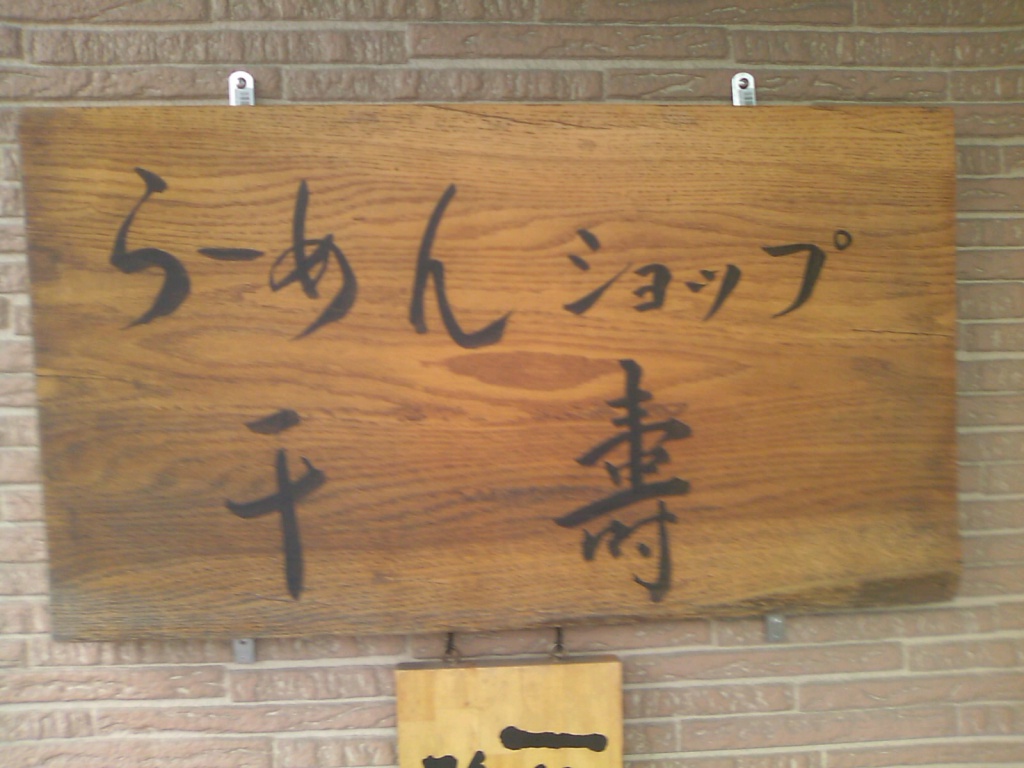 らーめんショップ
千壽